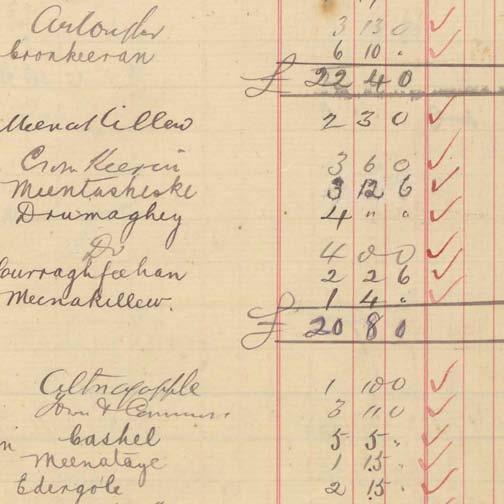 3 13 0
Cronkeeran 6 10 "
£ 22 4 0
Meenakillew 2 3 0
Cronkeerin 3 6 0
Meentasheske 3 12 6
Drumaghey 4 " "
Do 4 0 0
2 2 6
Meenakillew. 1 4 "
£ 20 8 0
Altnagapple 1 10 0
3 11 0
Cashel 5 5 "
Meenatage 1 15 "
Edergole 2 15 "